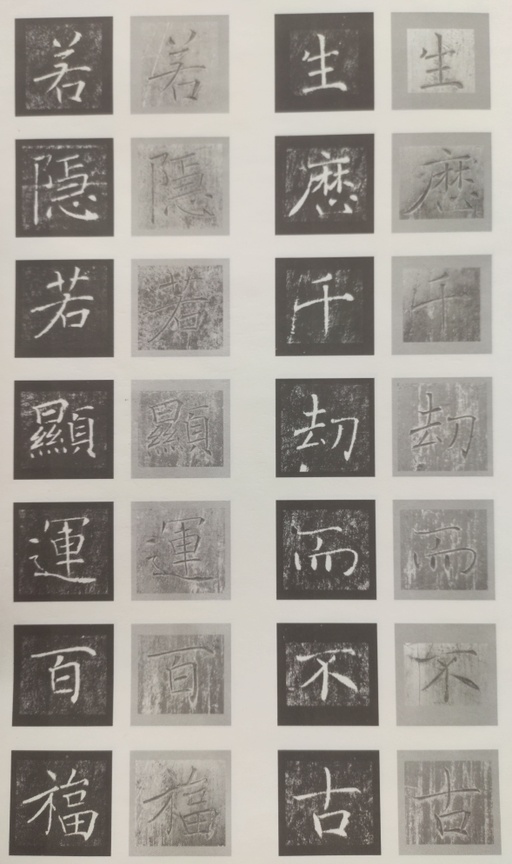 生歷千劫而不古
生歷千劫而不古
若隱若顯運百福
若隱若顯運百福